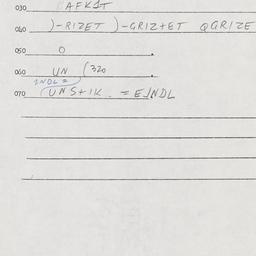 030 (AFKIT
040 )-RIZET )-GRIZ+ET QGRIZE
050 O .
060 UN (320 .
INDL =
070 (UNS+IK. = EINDL